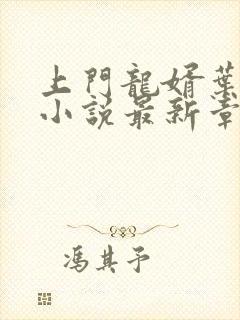 上門龍婿葉
小說最新章
馮其予